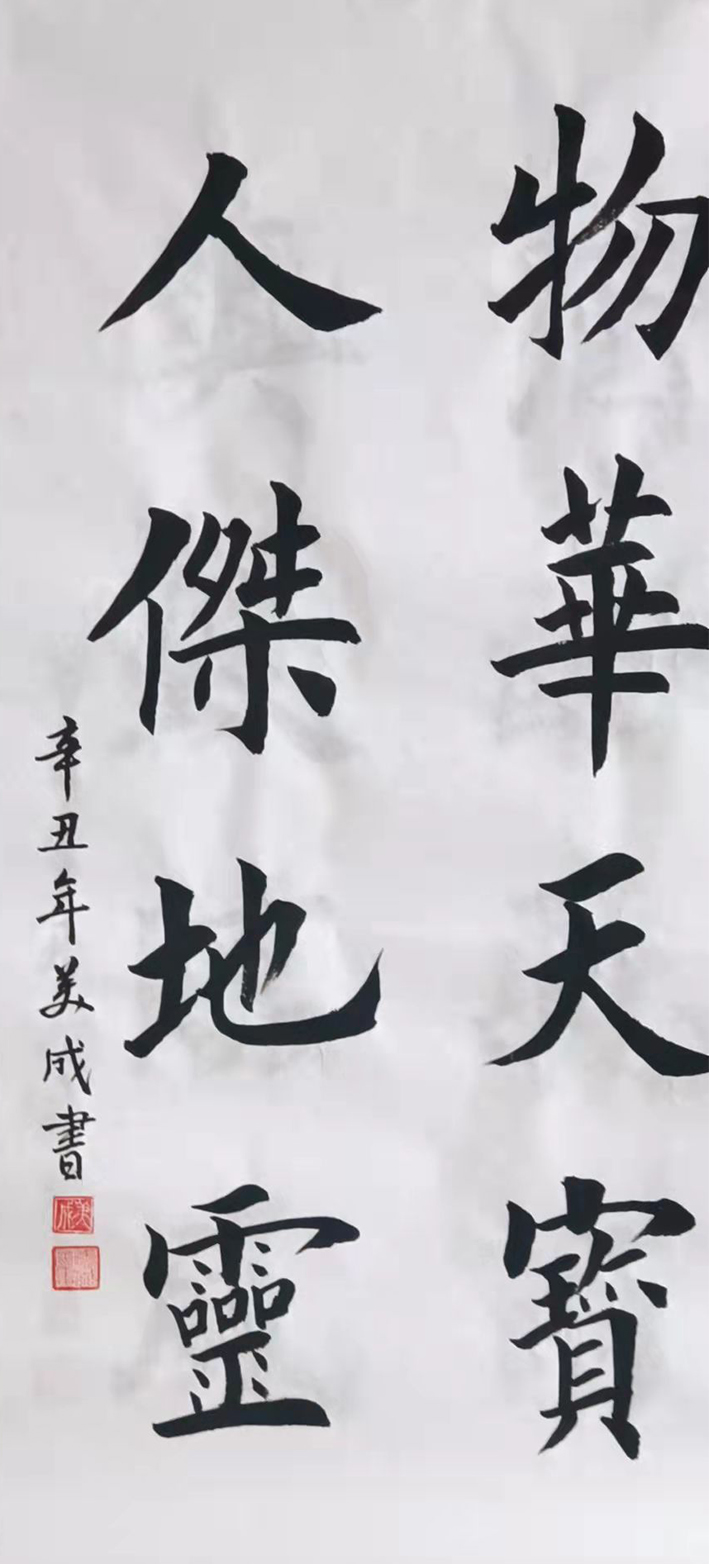 物華天寶
人傑地靈
辛丑年美成書
美成